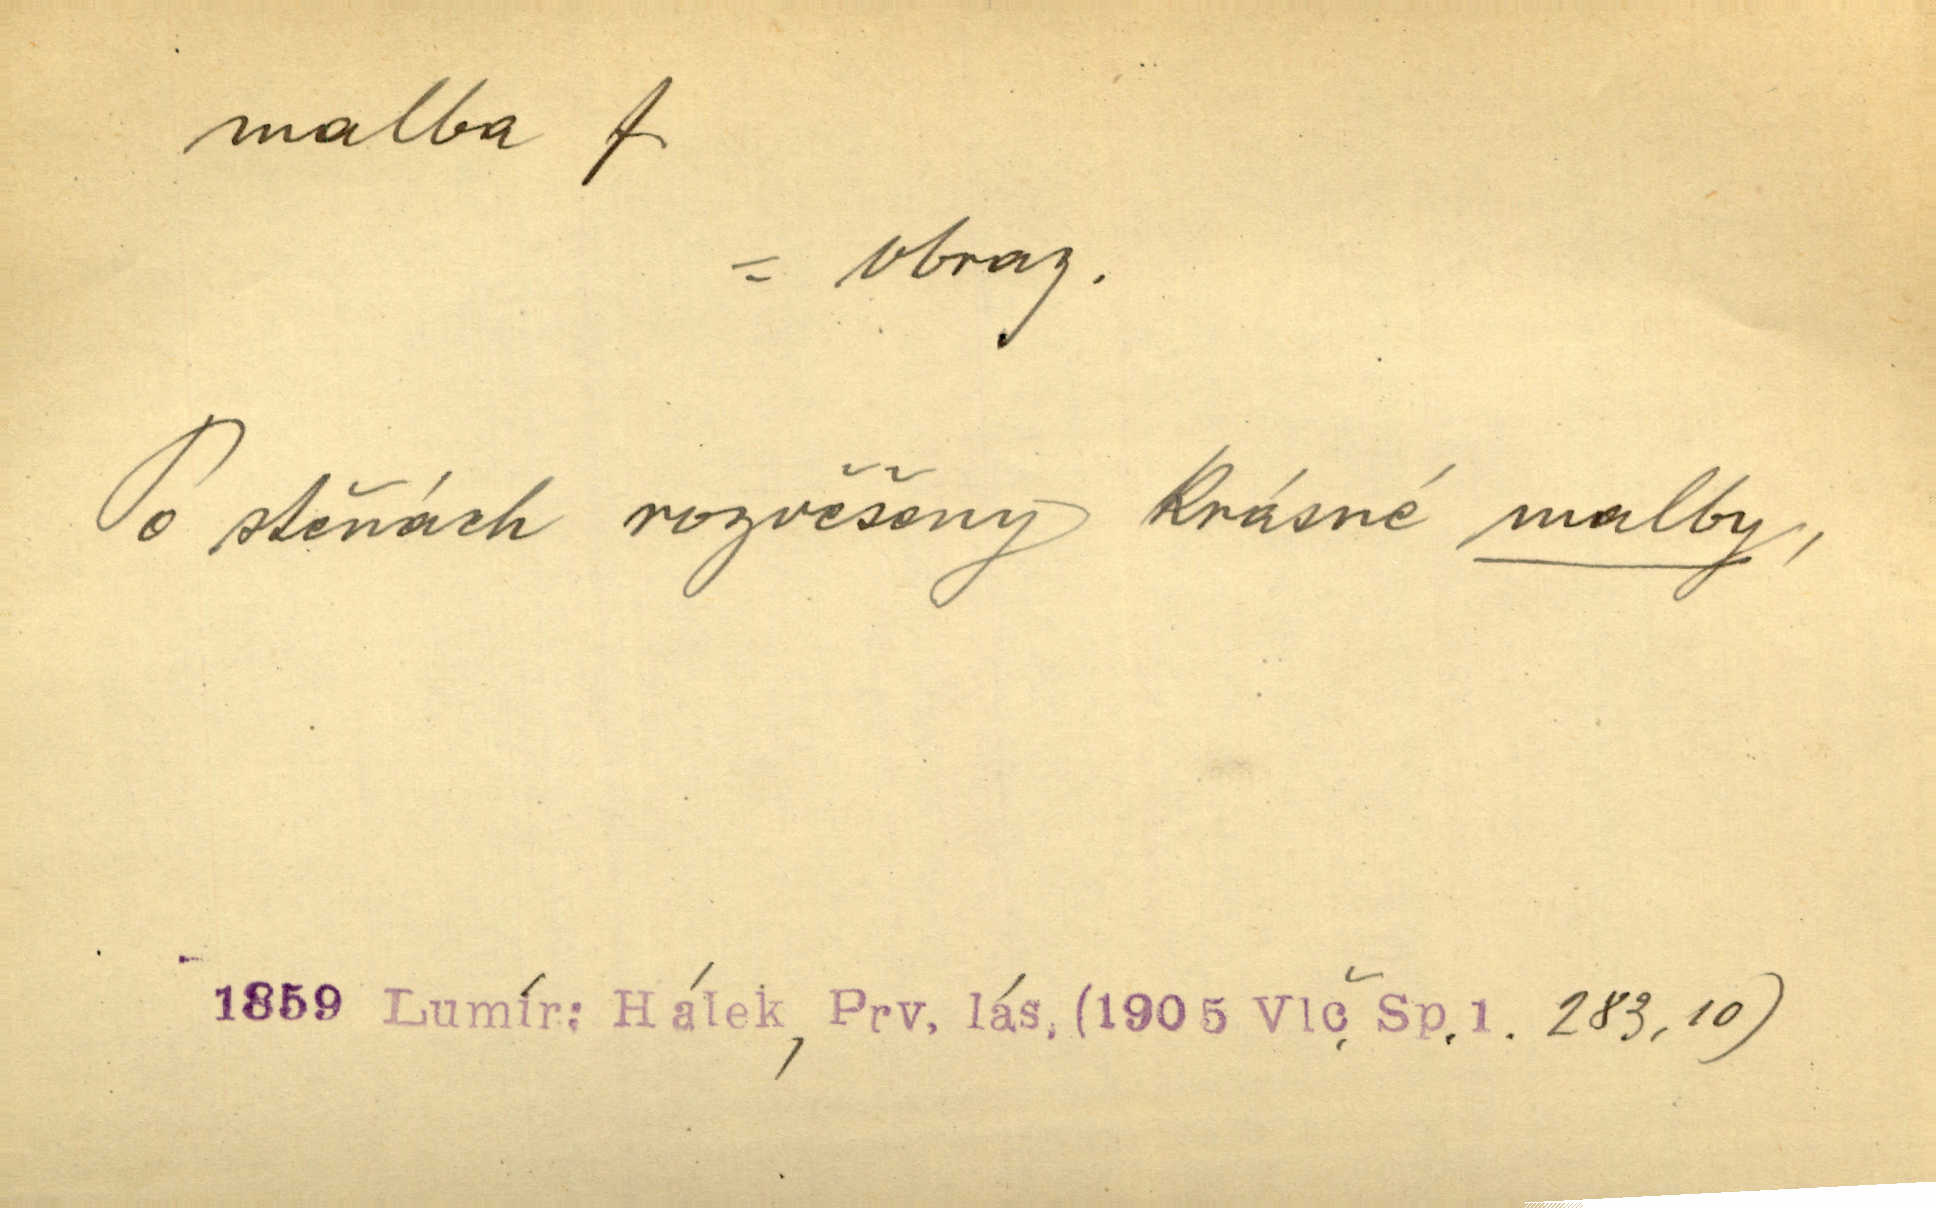 malba f
= obraz.
Po stěnách rozvěšeny krásné malby,
1859 Lumír: Hálek, Prv. lás. (1905 Vlč. Sp. 1. 283, 10)